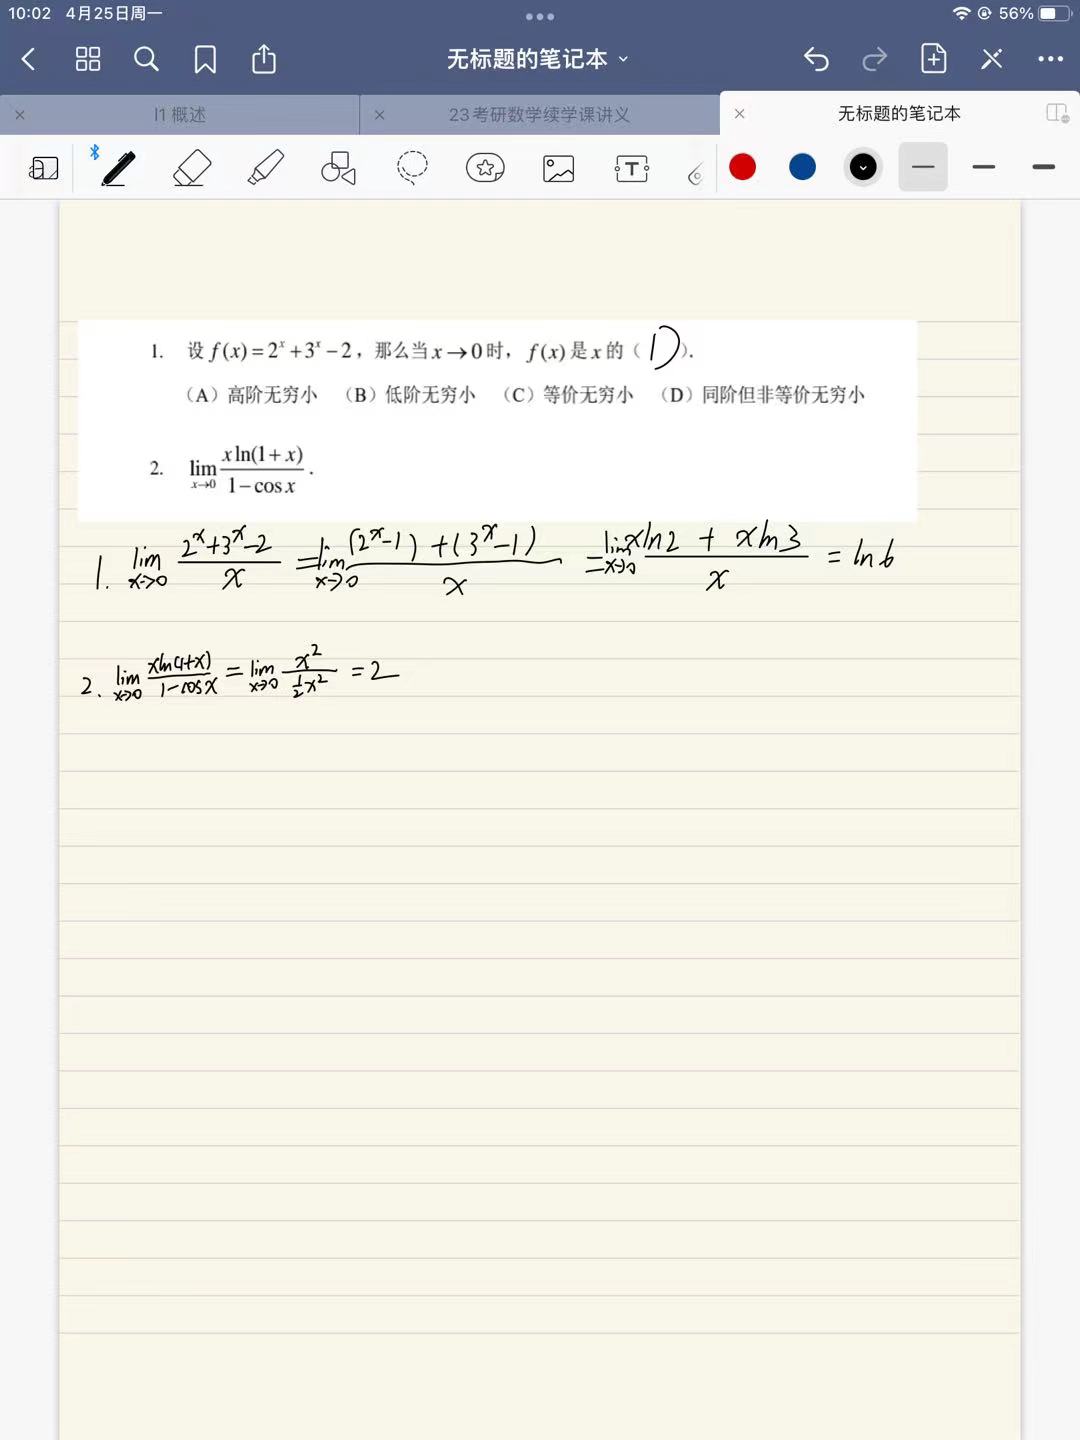 10:02 4月25日周一
56%
无标题的笔记本
l1 概述
23考研数学续学课讲义
无标题的笔记本
1. 设 f(x)=2^x+3^x-2，那么当 x→0 时，f(x) 是 x 的（D）.
（A）高阶无穷小 （B）低阶无穷小 （C）等价无穷小 （D）同阶但非等价无穷小
2. lim_{x→0} \frac{x ln(1+x)}{1-cos x}.
1. lim_{x→0} \frac{2^x+3^x-2}{x} = lim_{x→0} \frac{(2^x-1)+(3^x-1)}{x} = lim_{x→0} \frac{xln2+xln3}{x} = ln6
2. lim_{x→0} \frac{xln(1+x)}{1-cosx} = lim_{x→0} \frac{x^2}{\frac{1}{2}x^2} = 2